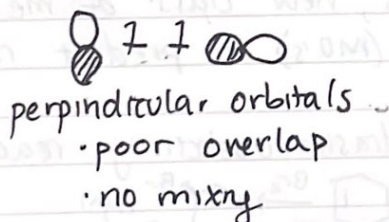 1 1
perpindicular orbitals
• poor overlap
• no mixny